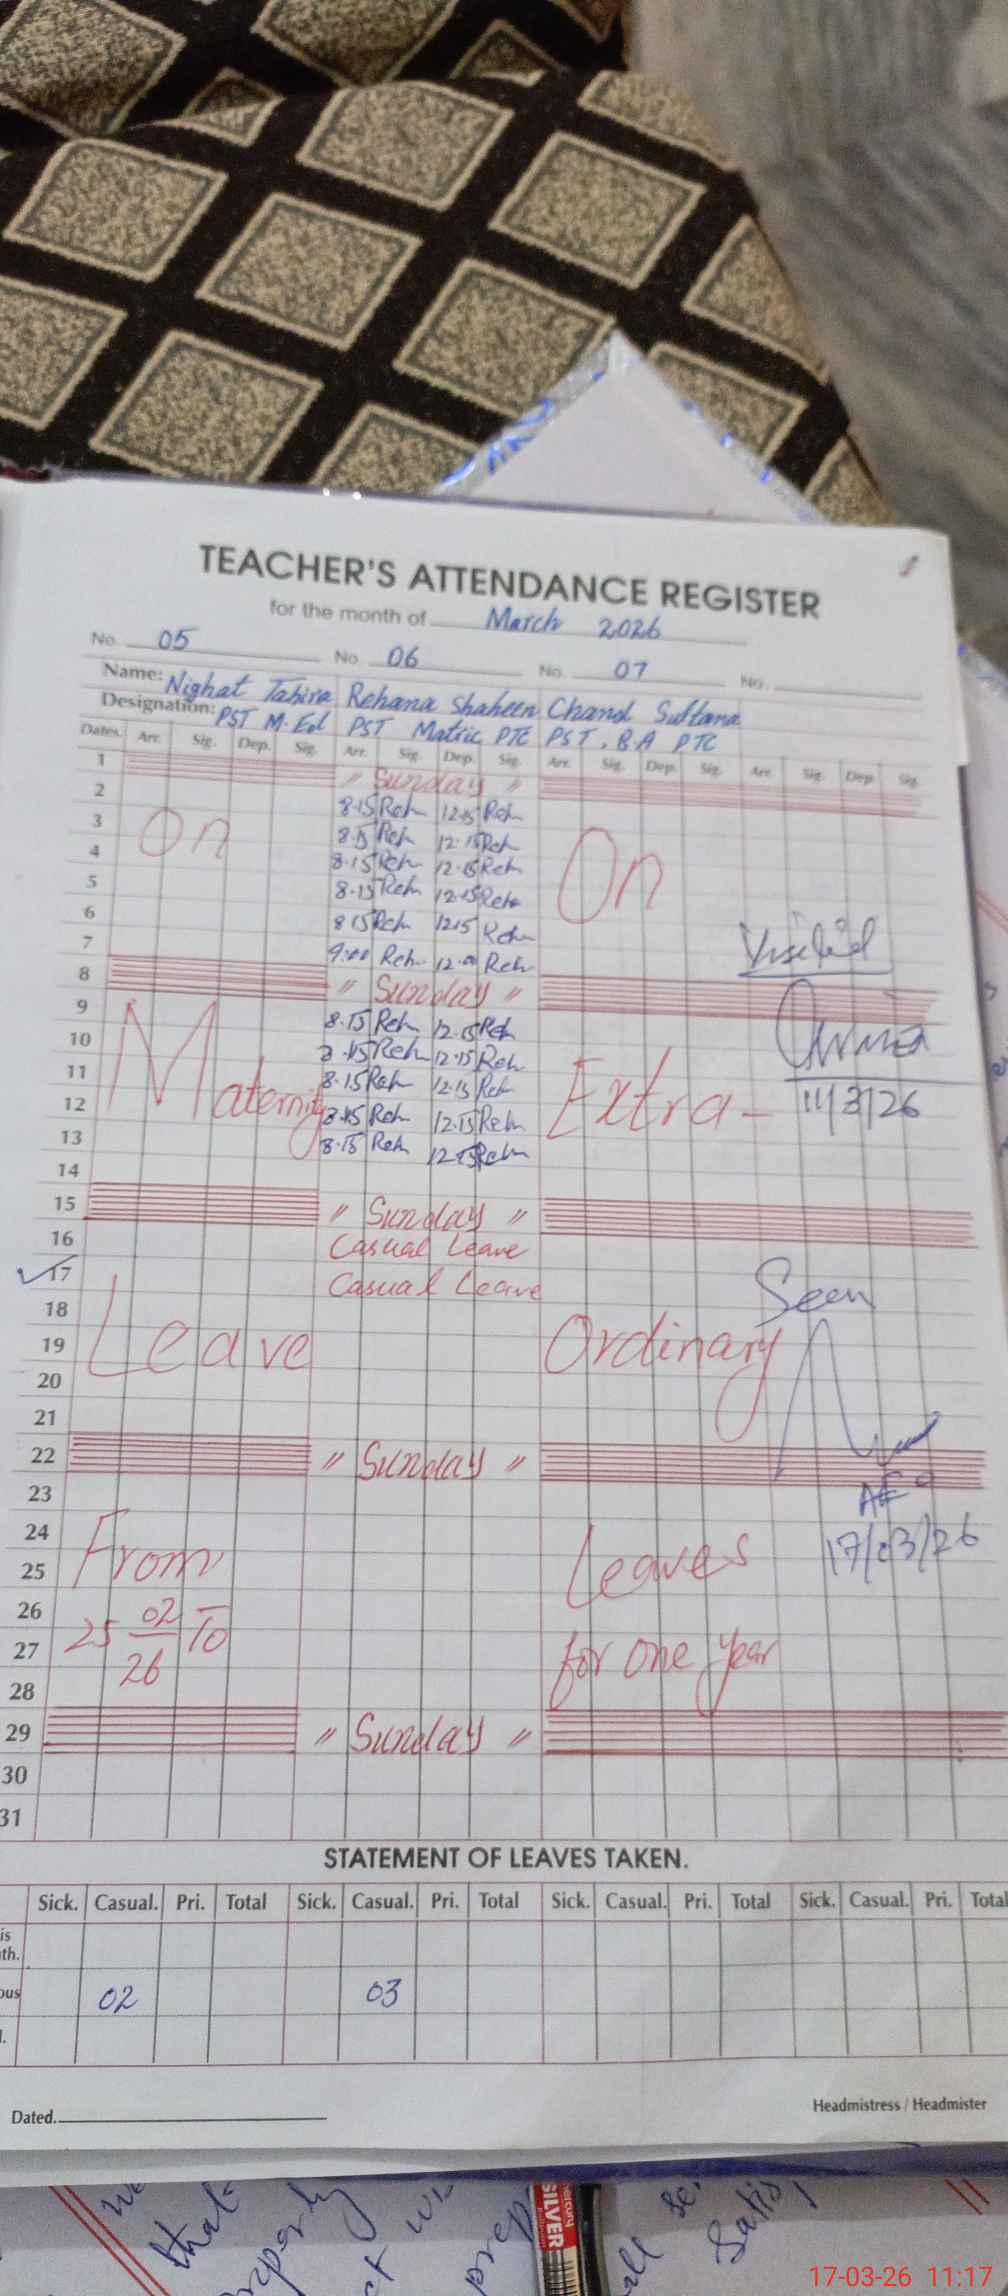 TEACHER'S ATTENDANCE REGISTER
for the month of March 2026
No. 05 No. 06 No. 07 No.
Name: Nighat Tahira Rehana Shaheen Chand Sultana
Designation: PST M.Ed PST Matric PTC PST, B.A PTC
Dates. Arr. Sig. Dep. Sig. Arr. Sig. Dep. Sig. Arr. Sig. Dep. Sig. Arr. Sig. Dep. Sig.
1 " Sunday "
2 8.15 Reh 12.15 Reh
3 On 8.15 Reh 12.15 Reh
4 8.15 Reh 12.15 Reh On
5 8.15 Reh 12.15 Reh
6 8 15 Reh 12 15 Reh
7 9:00 Reh 12.00 Reh Visited
8 " Sunday "
9 8.15 Reh 12.15 Reh
10 8.15 Reh 12.15 Reh
11 8.15 Reh 12.15 Reh
12 Maternity 8.15 Reh 12.15 Reh Extra - 11/3/26
13 8.15 Reh 12.15 Reh
14
15 " Sunday "
16 Casual Leave
17 Casual Leave Seen
18
19 Leave Ordinary
20
21
22 " Sunday "
23 AEO
24 Leaves 17/03/26
25 From
26
27 25 02/26 To for one year
28
29 " Sunday "
30
31
STATEMENT OF LEAVES TAKEN.
Sick. Casual. Pri. Total Sick. Casual. Pri. Total Sick. Casual. Pri. Total Sick. Casual. Pri. Total
is
th.
ous 02 03
l.
Dated. Headmistress / Headmister
that
SILVER
17-03-26 11:17